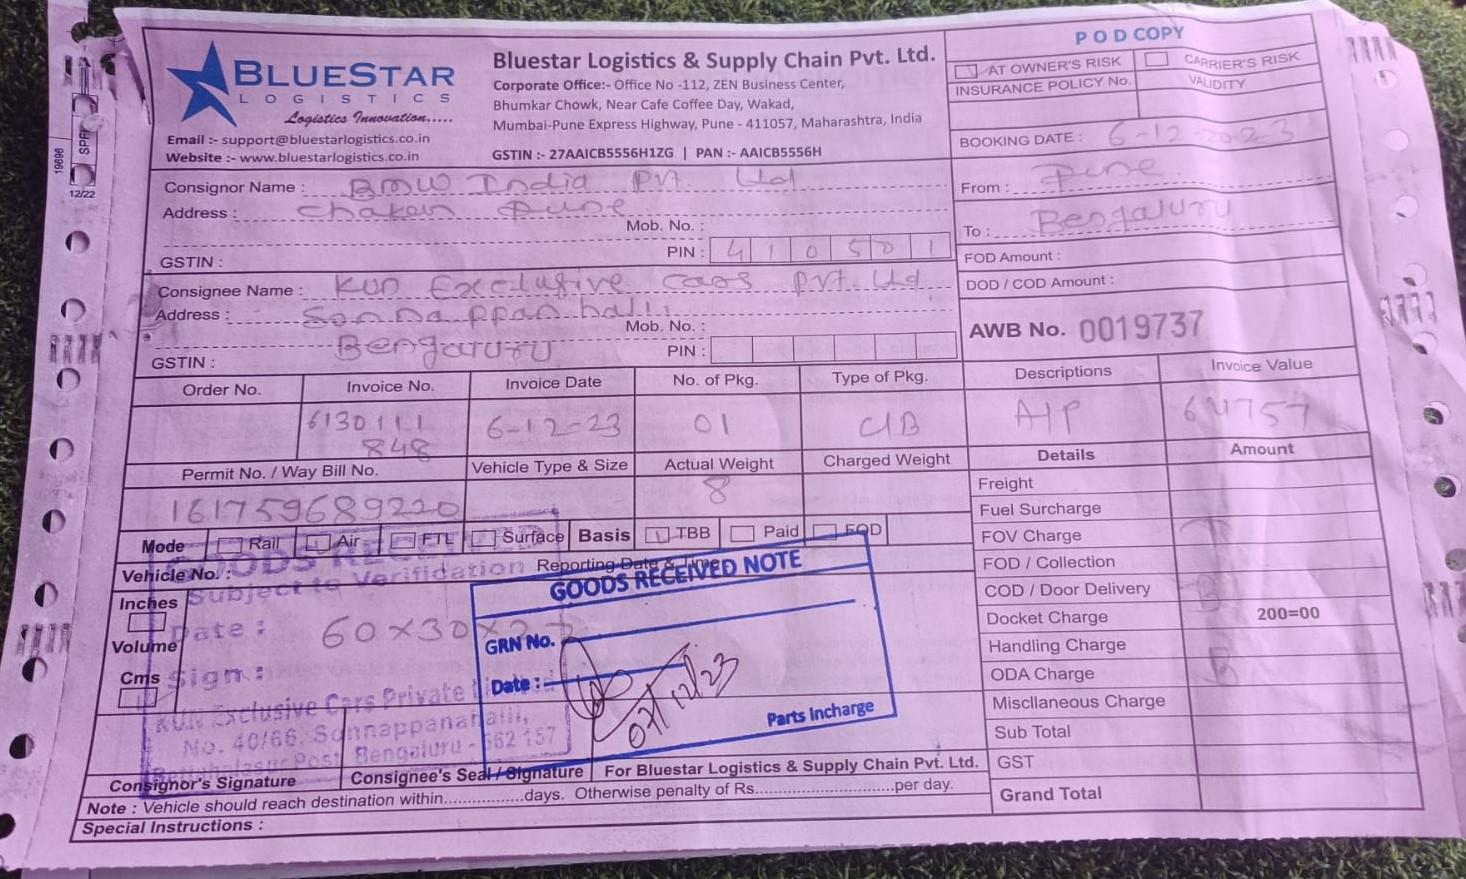 POD COPY
BLUESTAR
LOGISTICS
Logistics Innovation.....
Email :- support@bluestarlogistics.co.in
Website :- www.bluestarlogistics.co.in
Bluestar Logistics & Supply Chain Pvt. Ltd.
Corporate Office:- Office No -112, ZEN Business Center,
Bhumkar Chowk, Near Cafe Coffee Day, Wakad,
Mumbai-Pune Express Highway, Pune - 411057, Maharashtra, India
GSTIN :- 27AAICB5556H1ZG | PAN :- AAICB5556H
AT OWNER'S RISK CARRIER'S RISK
INSURANCE POLICY No. VALIDITY
BOOKING DATE : 6-12-2023
19696
12/22
Consignor Name : BMW India Pvt. Ltd
Address : Chaken Pune
Mob. No. :
GSTIN : PIN : 410501
From : Pune
To : Bengaluru
FOD Amount :
DOD / COD Amount :
Consignee Name : Kun Exclusive Cars Pvt. Ltd
Address : Sonnappanhalli
Mob. No. :
Bengaluru
GSTIN : PIN :
AWB No. 0019737
Order No. Invoice No. Invoice Date No. of Pkg. Type of Pkg. Descriptions Invoice Value
6130111 6-12-23 01 C/B A/P 64757
848
Permit No. / Way Bill No. Vehicle Type & Size Actual Weight Charged Weight Details Amount
161759689220 8
Mode Rail Air FTL Surface Basis TBB Paid FOD
Vehicle No. : Reporting Date & Time
Inches
Volume
Cms
60x30x
GOODS RECEIVED
Subject to Verification
Date :
Sign :
KUN Exclusive Cars Private Limited
No. 40/66, Sonnappanahalli,
Post Bengaluru - 562 157
GOODS RECEIVED NOTE
GRN No.
Date :
07/12/23
Parts Incharge
Freight
Fuel Surcharge
FOV Charge
FOD / Collection
COD / Door Delivery
Docket Charge 200=00
Handling Charge
ODA Charge
Miscllaneous Charge
Sub Total
GST
Grand Total
Consignor's Signature Consignee's Seal / Signature For Bluestar Logistics & Supply Chain Pvt. Ltd.
Note : Vehicle should reach destination within................days. Otherwise penalty of Rs............................per day.
Special Instructions :